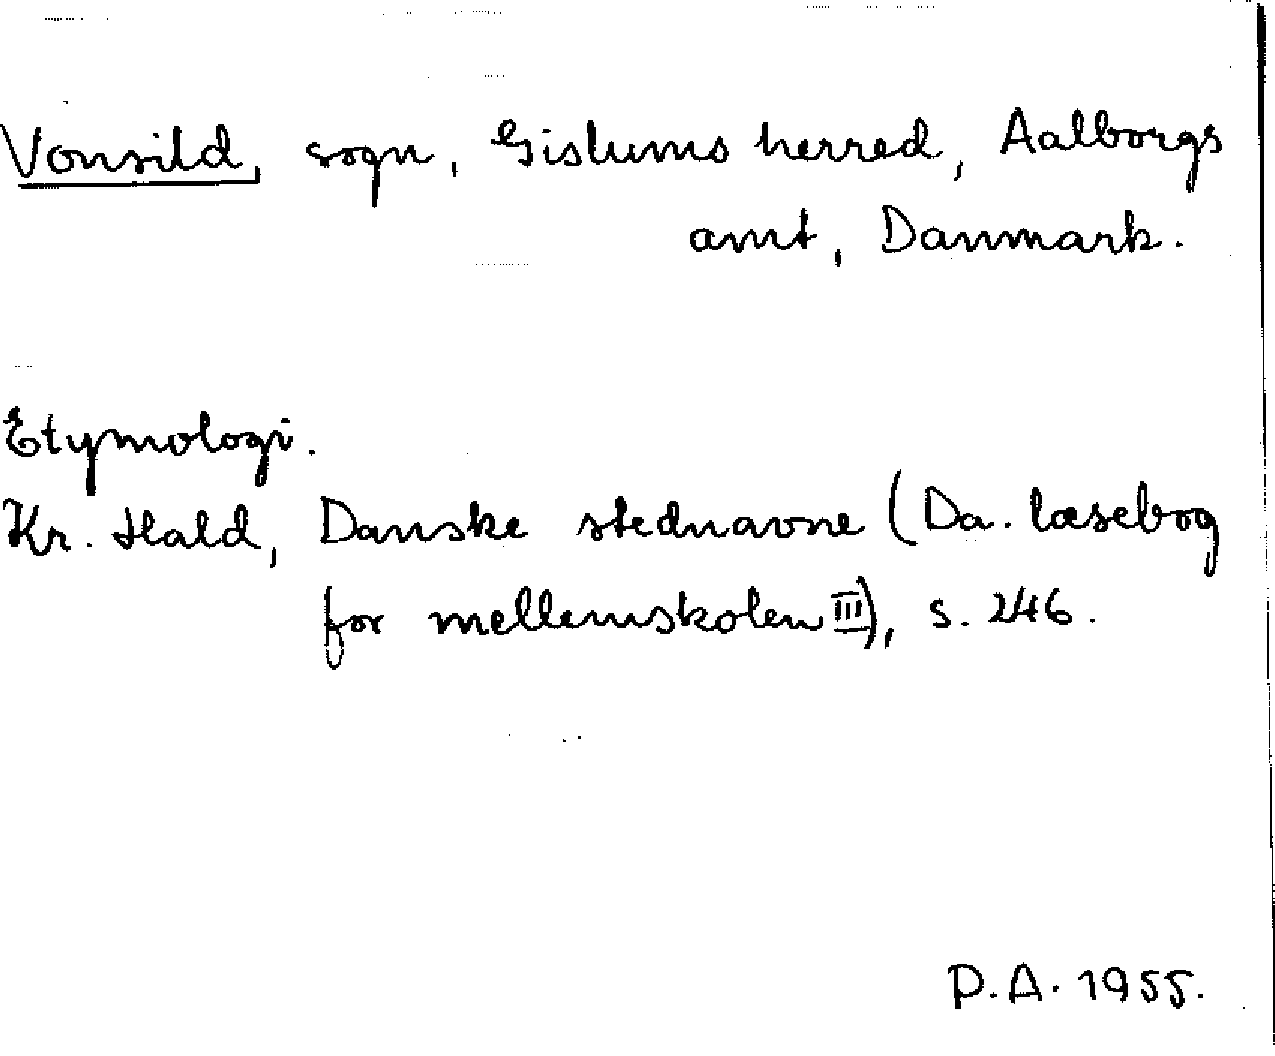 Vonsild, sogn, Gislums herred, Aalborgs
amt, Danmark.
Etymologi.
Kr. Hald, Danske stednavne (Da. læsebog
for mellemskolen III), s. 246.
P.A. 1955.